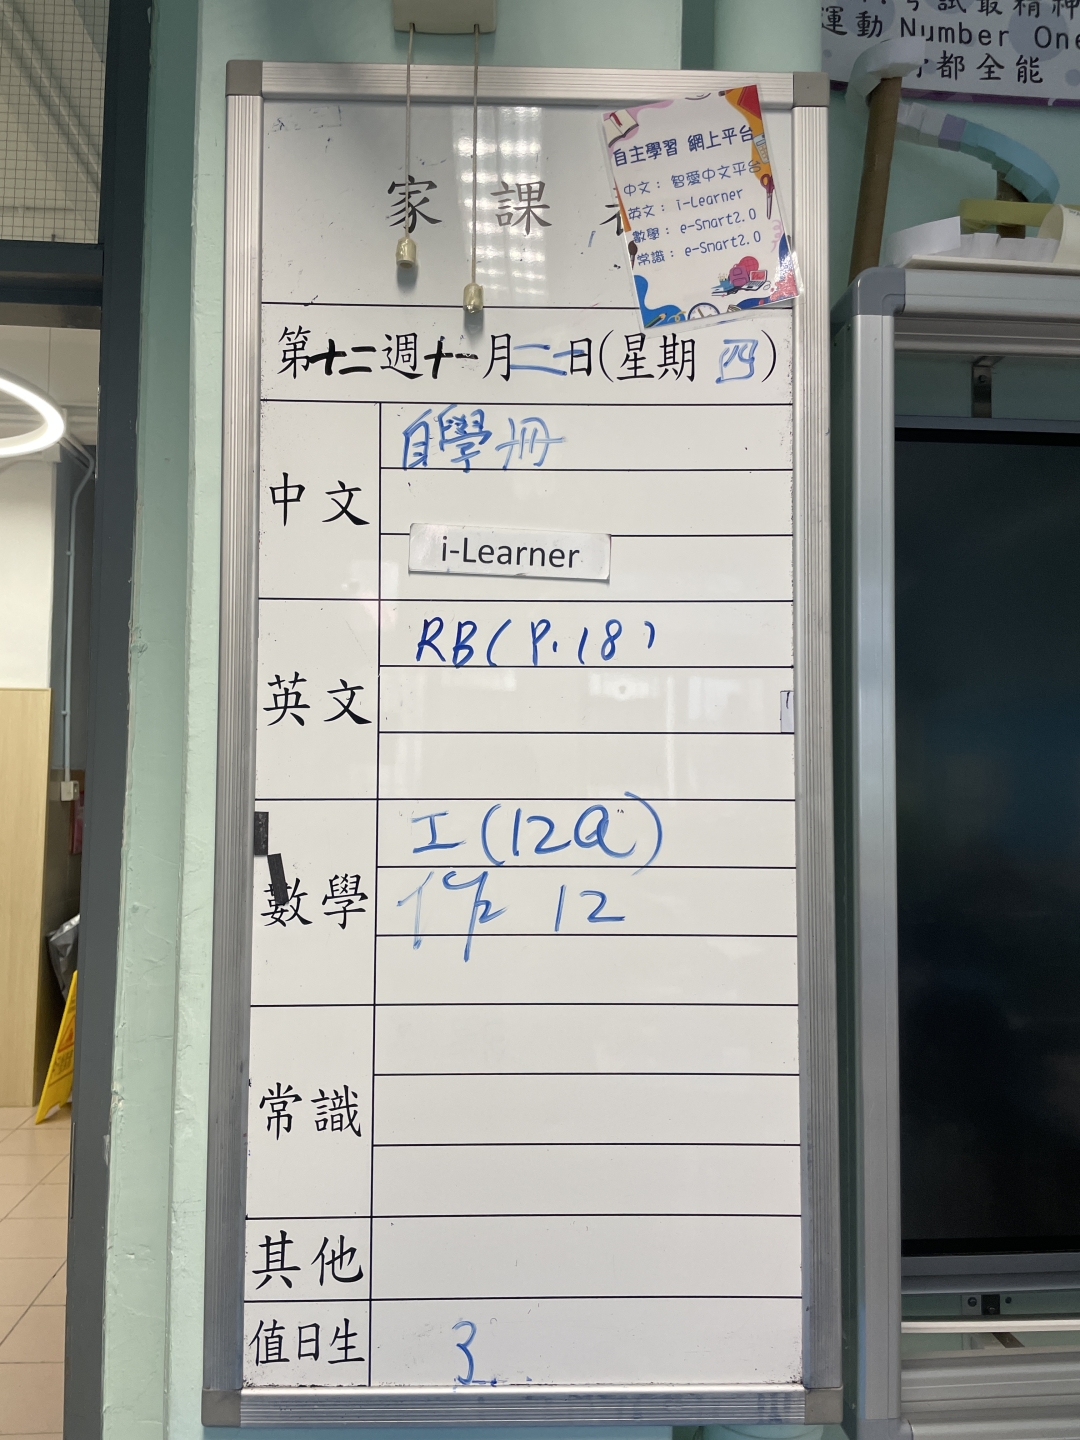 試最精神
運動 Number One
都全能
自主學習 網上平台
中文： 智愛中文平台
英文： i-Learner
數學： e-Smart2.0
常識： e-Smart2.0
家 課
第十二週十一月二十日(星期 四)
中文
自學冊
i-Learner
英文
RB( P. 18)
數學
工(12Q)
作 12
常識
其他
值日生
3